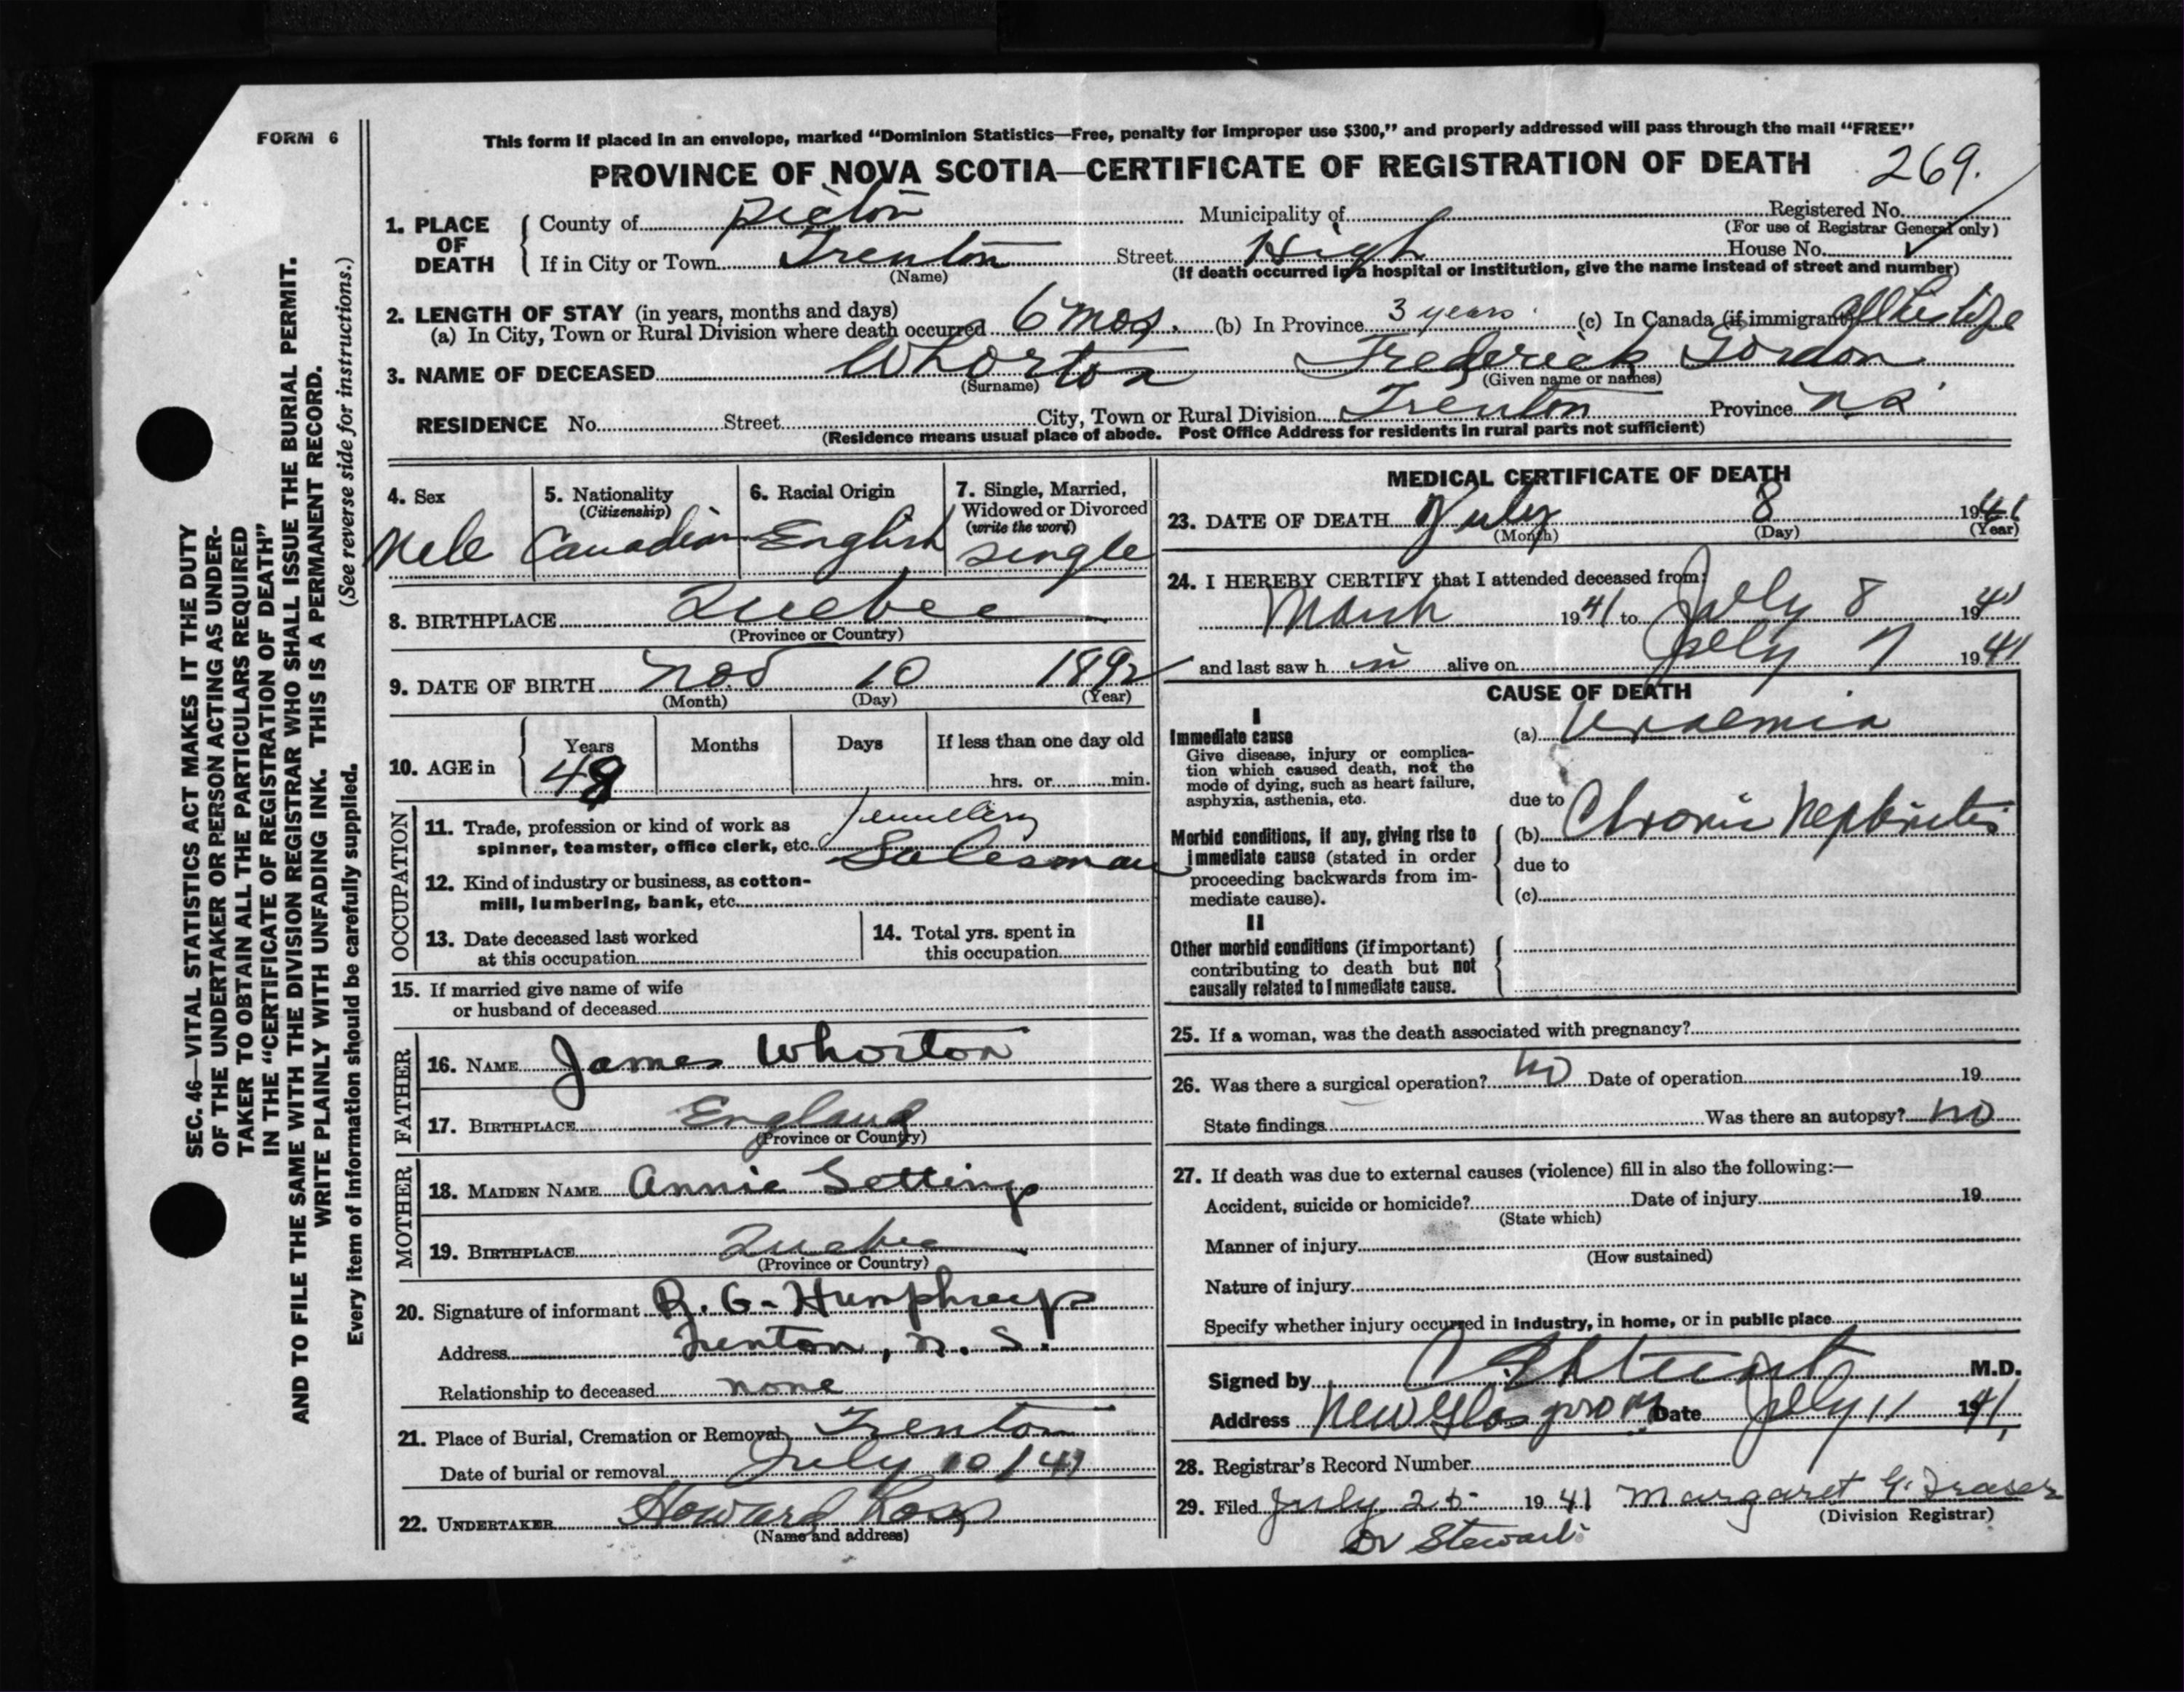 FORM 6
This form if placed in an envelope, marked "Dominion Statistics—Free, penalty for improper use $300," and properly addressed will pass through the mail "FREE"
PROVINCE OF NOVA SCOTIA—CERTIFICATE OF REGISTRATION OF DEATH 269.
1. PLACE OF DEATH
County of Pictou Municipality of Registered No.
(For use of Registrar General only)
If in City or Town Trenton Street High House No.
(Name) (If death occurred in a hospital or institution, give the name instead of street and number)
2. LENGTH OF STAY (in years, months and days)
(a) In City, Town or Rural Division where death occurred 6 mos. (b) In Province 3 years (c) In Canada (if immigrant) all his life
3. NAME OF DECEASED Whorton Frederick Gordon
(Surname) (Given name or names)
RESIDENCE No. Street City, Town or Rural Division Trenton Province N.S.
(Residence means usual place of abode. Post Office Address for residents in rural parts not sufficient)
SEC. 46—VITAL STATISTICS ACT MAKES IT THE DUTY
OF THE UNDERTAKER OR PERSON ACTING AS UNDER-
TAKER TO OBTAIN ALL THE PARTICULARS REQUIRED
IN THE "CERTIFICATE OF REGISTRATION OF DEATH"
AND TO FILE THE SAME WITH THE DIVISION REGISTRAR WHO SHALL ISSUE THE BURIAL PERMIT.
WRITE PLAINLY WITH UNFADING INK. THIS IS A PERMANENT RECORD.
Every item of information should be carefully supplied. (See reverse side for instructions.)
4. Sex Male
5. Nationality (Citizenship) Canadian
6. Racial Origin English
7. Single, Married, Widowed or Divorced (write the word) single
8. BIRTHPLACE Quebec
(Province or Country)
9. DATE OF BIRTH Nov 10 1892
(Month) (Day) (Year)
10. AGE in Years Months Days If less than one day old
48 hrs. or min.
OCCUPATION
11. Trade, profession or kind of work as Jewellery
spinner, teamster, office clerk, etc. Salesman
12. Kind of industry or business, as cotton-
mill, lumbering, bank, etc.
13. Date deceased last worked at this occupation
14. Total yrs. spent in this occupation
15. If married give name of wife
or husband of deceased
FATHER
16. NAME James Whorton
17. BIRTHPLACE England
(Province or Country)
MOTHER
18. MAIDEN NAME Annie Gettings
19. BIRTHPLACE Quebec
(Province or Country)
20. Signature of informant R. G. Humphreys
Address Trenton, N. S.
Relationship to deceased none
21. Place of Burial, Cremation or Removal Trenton
Date of burial or removal July 10/41
22. UNDERTAKER Howard Ross
(Name and address)
MEDICAL CERTIFICATE OF DEATH
23. DATE OF DEATH July 8 1941
(Month) (Day) (Year)
24. I HEREBY CERTIFY that I attended deceased from:
March 1941 to July 8 1941
and last saw h im alive on July 7 1941
CAUSE OF DEATH
I
Immediate cause
Give disease, injury or complica-
tion which caused death, not the
mode of dying, such as heart failure,
asphyxia, asthenia, etc.
(a) Uraemia
due to
Morbid conditions, if any, giving rise to
immediate cause (stated in order
proceeding backwards from im-
mediate cause).
(b) Chronic Nephritis
due to
(c)
II
Other morbid conditions (if important)
contributing to death but not
causally related to immediate cause.
25. If a woman, was the death associated with pregnancy?
26. Was there a surgical operation? no Date of operation 19
State findings Was there an autopsy? no
27. If death was due to external causes (violence) fill in also the following:—
Accident, suicide or homicide? Date of injury 19
(State which)
Manner of injury
(How sustained)
Nature of injury
Specify whether injury occurred in industry, in home, or in public place
Signed by Stewart M.D.
Address New Glasgow Date July 11 1941
28. Registrar's Record Number
29. Filed July 25 1941 Margaret G. Fraser
(Division Registrar)
Dr Stewart